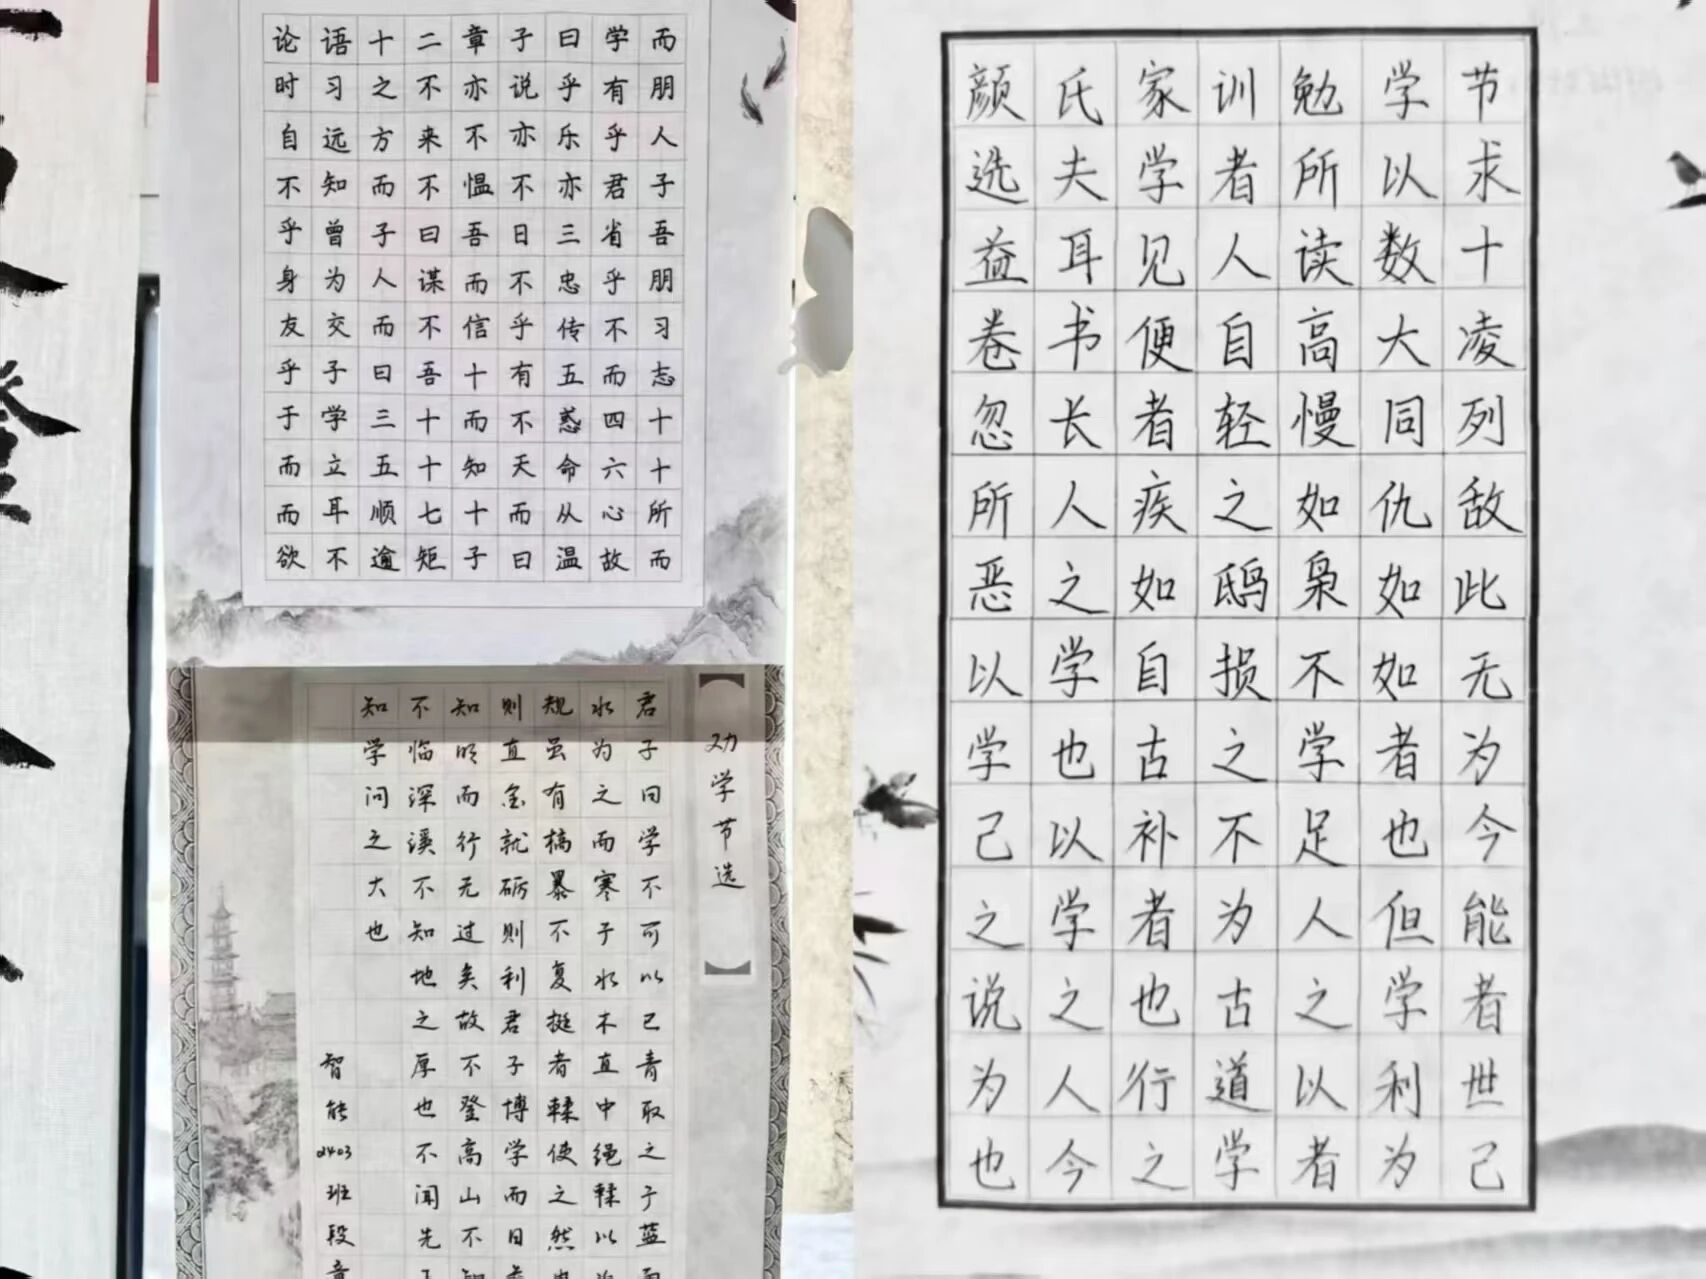 论语十二章子曰学而
时习之不亦说乎有朋
自远方来不亦乐乎人
不知而不愠不亦君子
乎曾子曰吾日三省吾
身为人谋而不忠乎朋
友交而不信乎传不习
乎子曰吾十有五而志
于学三十而不惑四十
而立五十知天命六十
而耳顺七十而从心所
欲不逾矩子曰温故而
劝学节选
君子曰学不可以已青取之于蓝而
水为之而寒于水木直中绳輮以
规虽有槁暴不复挺者輮使之然
则直金就砺则利君子博学而日
知明而行无过矣故不登高山不
不临深溪不知地之厚也不闻先
知学问之大也
智能2403班段
颜氏家训勉学节
选夫学者所以求
益耳见人读数十
卷书便自高大凌
忽长者轻慢同列
所人疾之如仇敌
恶之如鸱枭如此
以学自损不如无
学也古之学者为
己以补不足也今
之学者为人但能
说之也古之学者
为人行道以利世
也今之学者为己